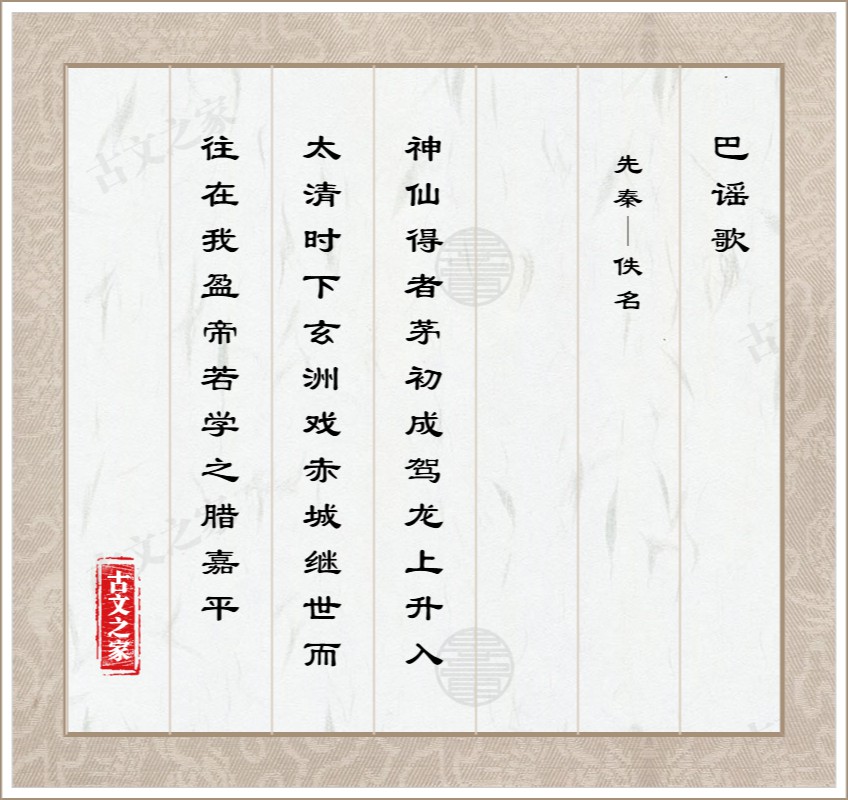 巴谣歌
先秦—佚名
神仙得者茅初成驾龙上升入
太清时下玄洲戏赤城继世而
往在我盈帝若学之腊嘉平
古文之家
古文之家
古文之家